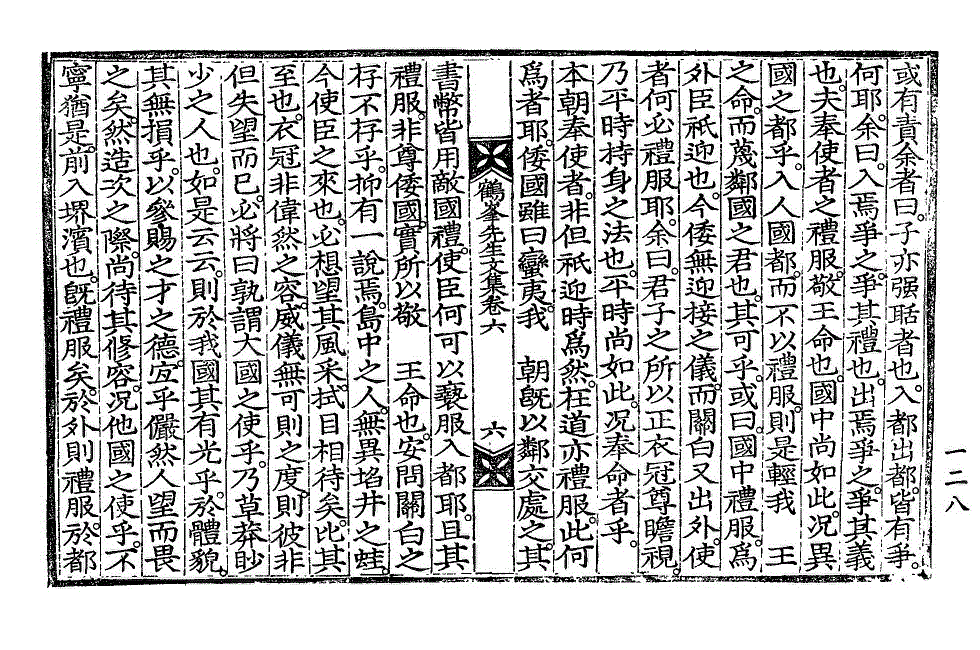 或有責余者曰。子亦强聒者也。入都出都。皆有爭。
何耶。余曰。入焉爭之。爭其禮也。出焉爭之。爭其義
也。夫奉使者之禮服。敬王命也。國中尙如此。况異
國之都乎。入人國都。而不以禮服。則是輕我　王
之命。而蔑鄰國之君也。其可乎。或曰。國中禮服。爲
外臣祇迎也。今倭無迎接之儀。而關白又出外。使
者何必禮服耶。余曰。君子之所以正衣冠尊瞻視。
乃平時持身之法也。平時尙如此。况奉命者乎。
本朝奉使者。非但祇迎時爲然。在道亦禮服。此何
爲者耶。倭國雖曰蠻夷。我　朝旣以鄰交處之。其
鶴峯先生文集卷六
六
書幣皆用敵國禮。使臣何可以褻服入都耶。且其
禮服。非尊倭國。實所以敬　王命也。安問關白之
存不存乎。抑有一說焉。島中之人。無異埳井之蛙。
今使臣之來也。必想望其風采。拭目相待矣。比其
至也。衣冠非偉然之容。威儀無可則之度。則彼非
但失望而已。必將曰孰謂大國之使乎。乃草莽眇
少之人也。如是云云。則於我國其有光乎。於體貌。
其無損乎。以參賜之才之德。宜乎儼然人望而畏
之矣。然造次之際。尙待其修容。况他國之使乎。不
寧猶是。前入堺濱也。旣禮服矣。於外則禮服。於都
一二八